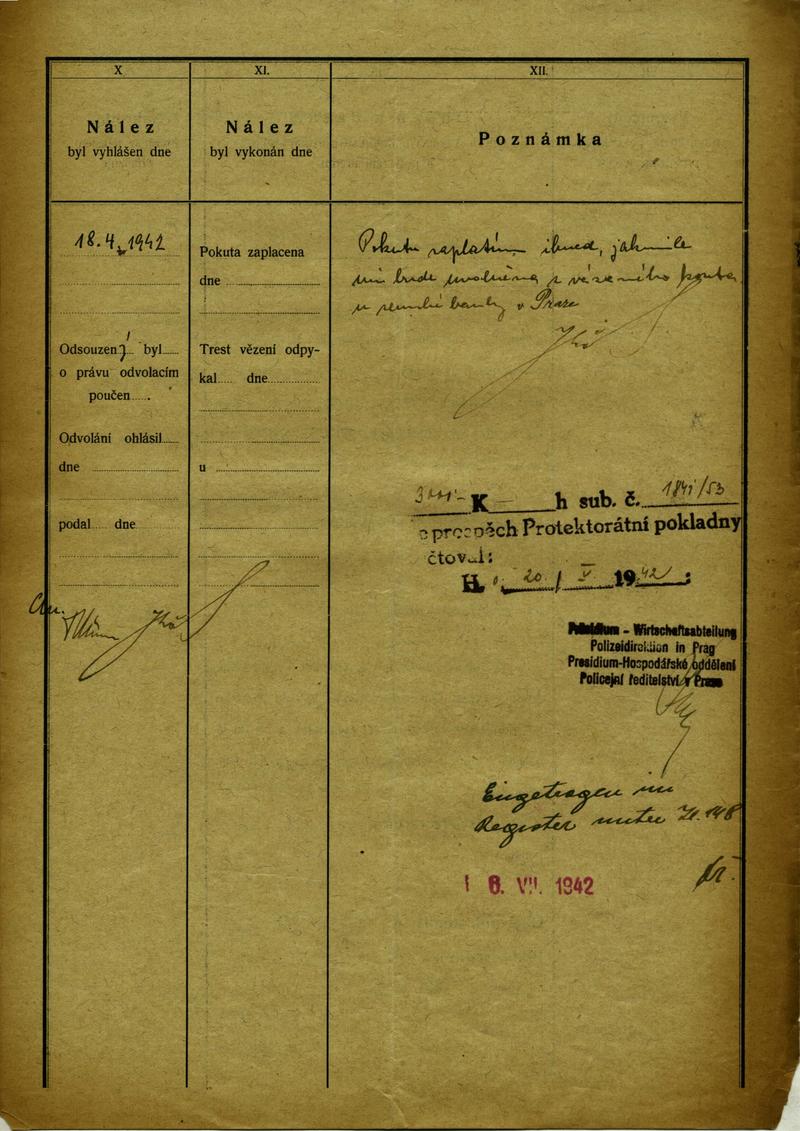 X
Nález
byl vyhlášen dne
XI.
Nález
byl vykonán dne
XII.
Poznámka
18. 4. 1942
Odsouzený byl
o právu odvolacím
poučen .
Odvolání ohlásil
dne
podal dne
Pokuta zaplacena
dne
Trest vězení odpy-
kal dne
u
Pokutu zaplatím ihned, jakmile
mi bude uvolněna z vázaného konta
u banky v Praze
K h sub. č. /53
prospěch Protektorátní pokladny
čtoval:
20/ V 1942 :
Präsidium - Wirtschaftsabteilung
Polizeidirektion in Prag
Presidium-Hospodářské oddělení
Policejní ředitelství v Praze
Eingetragen im
Register unter
16. VII. 1942